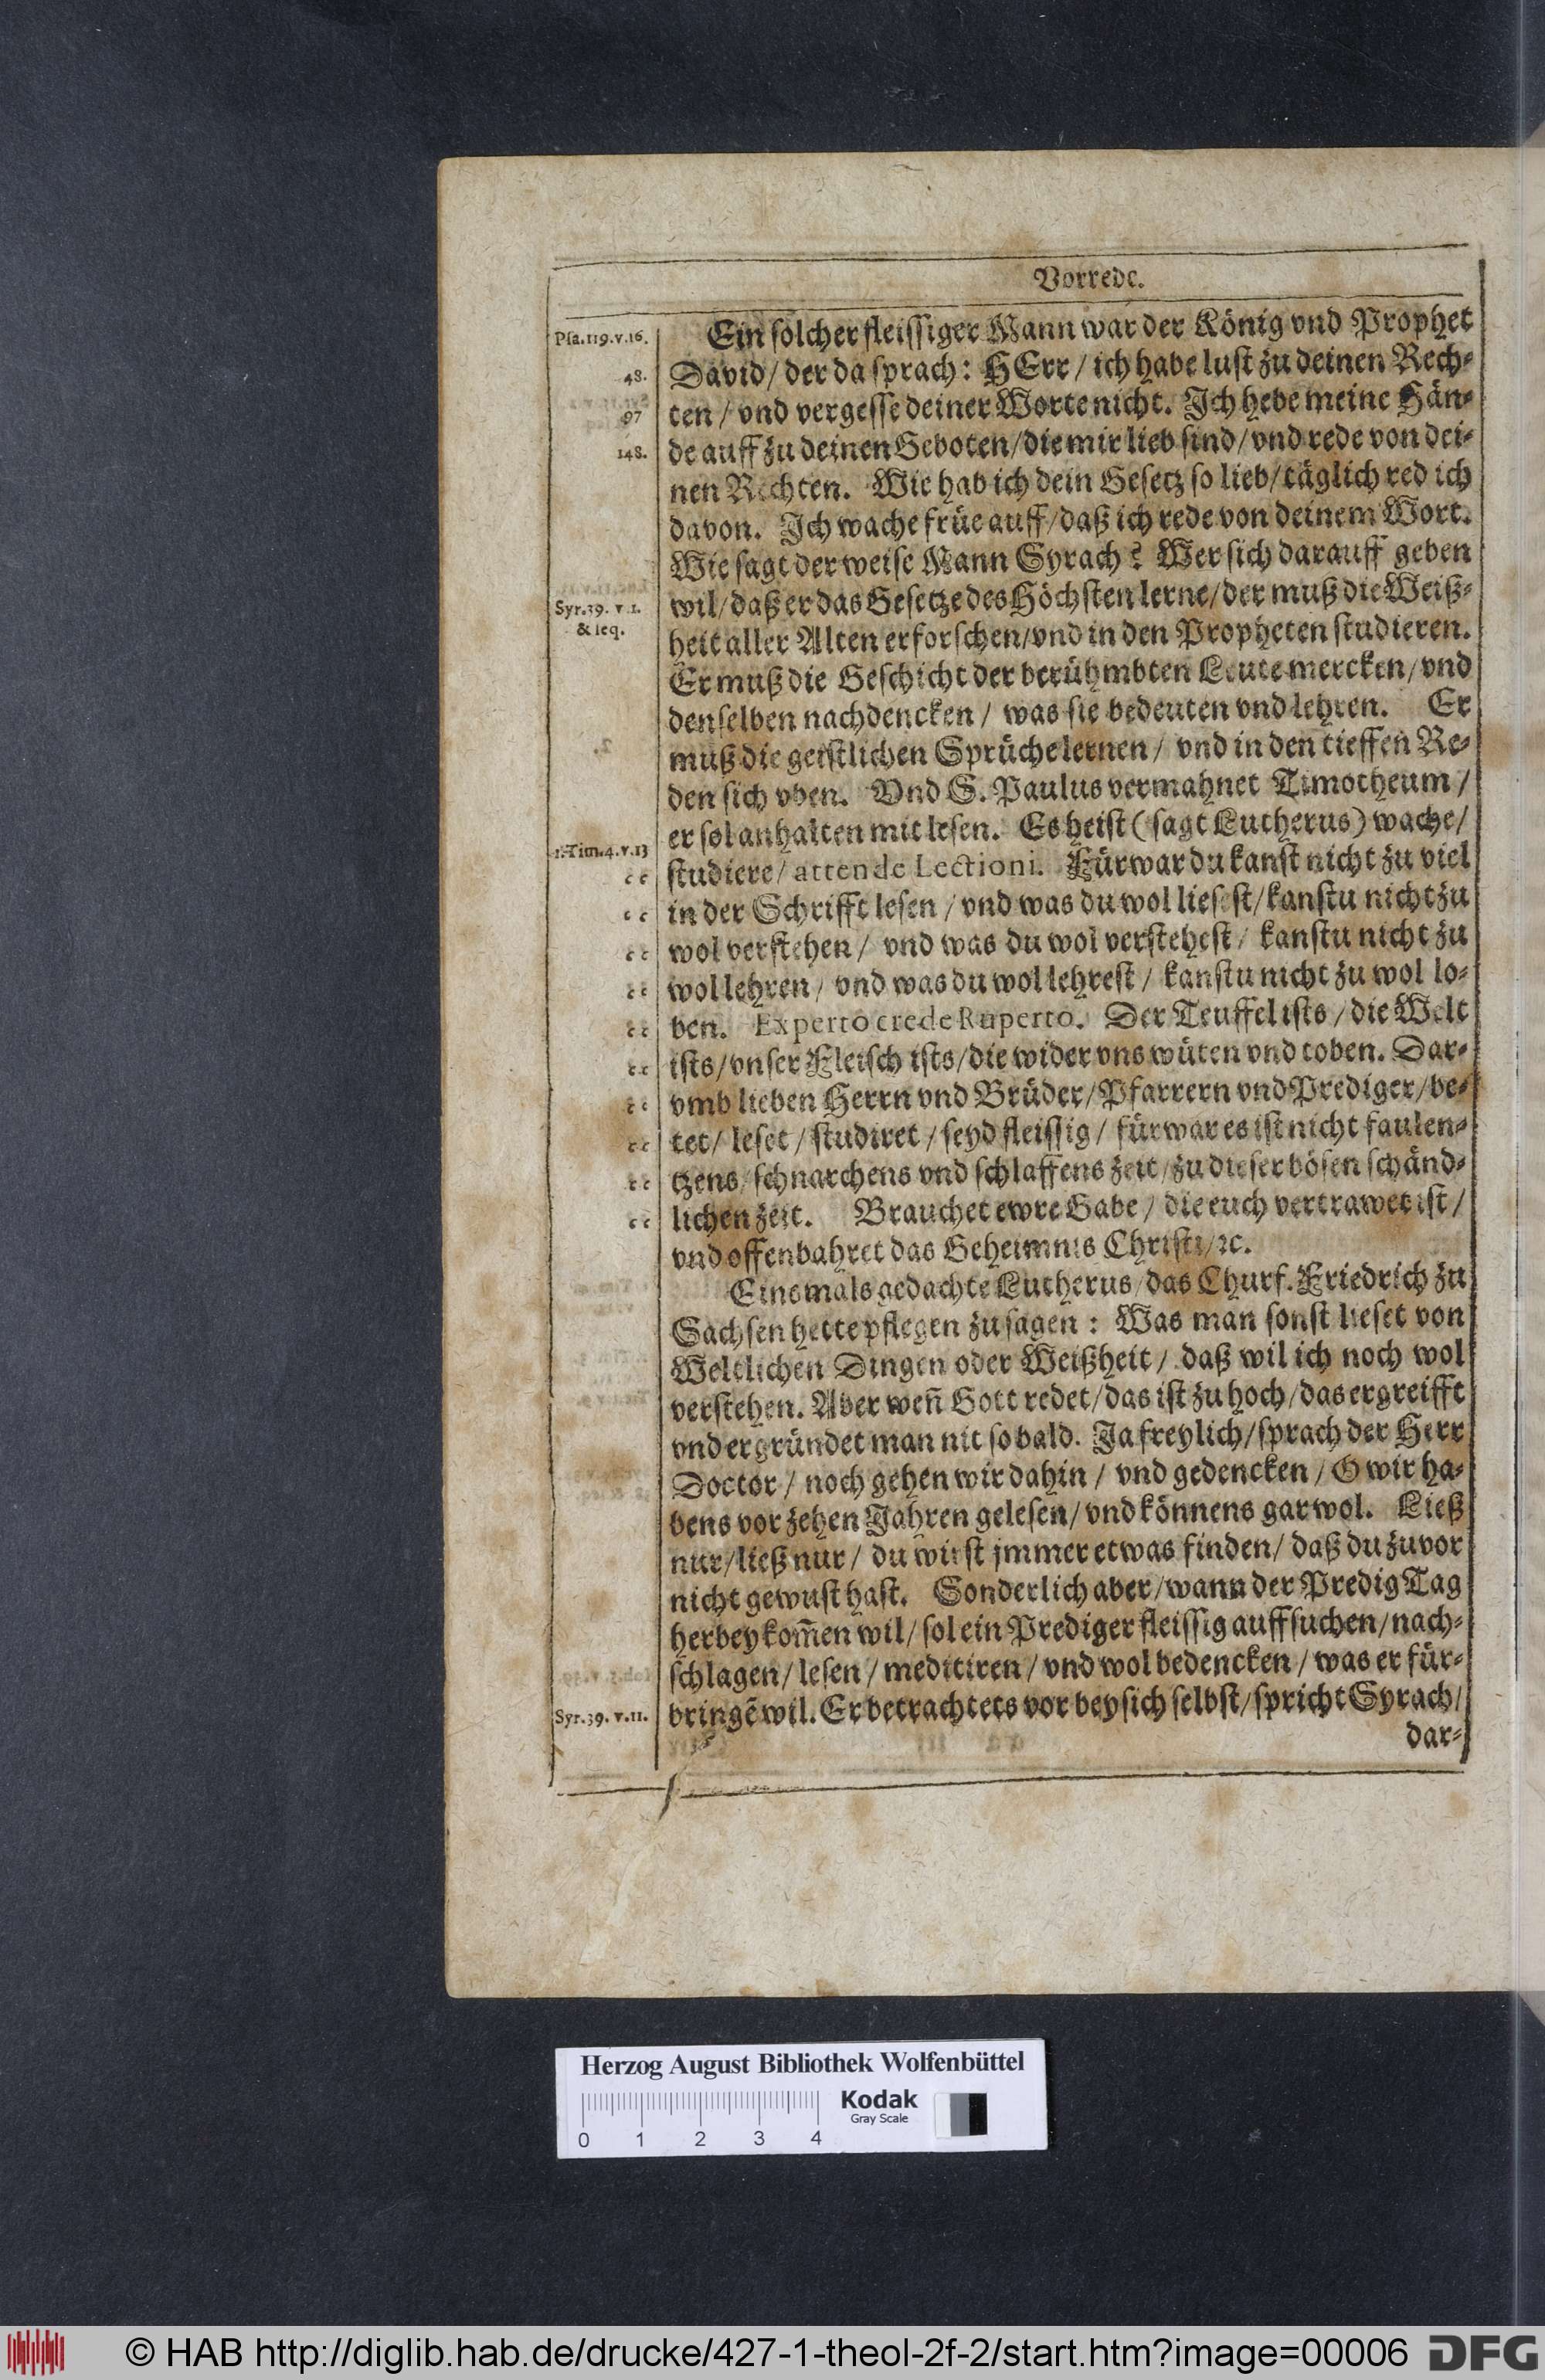 Vorrede.
Psa.119.v.16.
Ein solcher fleissiger Mann war der König vnd Prophet
48.
David/ der da sprach: HErr/ ich habe lust zu deinen Rech-
97
ten/ vnd vergesse deiner Worte nicht. Ich hebe meine Hän-
148.
de auff zu deinen Geboten/ die mir lieb sind/ vnd rede von dei-
nen Rechten. Wie hab ich dein Gesetz so lieb/ täglich red ich
davon. Ich wache früe auff/ daß ich rede von deinem Wort.
Wie sagt der weise Mann Syrach? Wer sich darauff geben
Syr.39. v.1.
wil/ daß er das Gesetze des Höchsten lerne/ der muß die Weiß-
& seq.
heit aller Alten erforschen/ vnd in den Propheten studieren.
Er muß die Geschicht der berühmbten Leute mercken/ vnd
denselben nachdencken/ was sie bedeuten vnd lehren. Er
muß die geistlichen Sprüche lernen/ vnd in den tieffen Re-
den sich vben. Vnd S. Paulus vermahnet Timotheum/
er sol anhalten mit lesen. Es heist (sagt Lutherus) wache/
1.Tim.4.v.13
studiere/ attende Lectioni. Fürwar du kanst nicht zu viel
in der Schrifft lesen/ vnd was du wol liesest/ kanstu nicht zu
wol verstehen/ vnd was du wol verstehest/ kanstu nicht zu
wol lehren/ vnd was du wol lehrest/ kanstu nicht zu wol lo-
ben. Experto crede Ruperto. Der Teuffel ists/ die Welt
ists/ vnser Fleisch ists/ die wider vns wüten vnd toben. Dar-
vmb lieben Herrn vnd Brüder/ Pfarrern vnd Prediger/ be-
tet/ leset/ studiret/ seyd fleissig/ fürwar es ist nicht faulen-
tzens/ schnarchens vnd schlaffens zeit/ zu dieser bösen schänd-
lichen zeit. Brauchet ewre Gabe/ die euch vertrawet ist/
vnd offenbahret das Geheimnis Christi/ ꝛc.
Einsmals gedachte Lutherus/ das Churf. Friedrich zu
Sachsen hette pflegen zu sagen: Was man sonst lieset von
Weltlichen Dingen oder Weißheit/ daß wil ich noch wol
verstehen. Aber weñ Gott redet/ das ist zu hoch/ das ergreifft
vnd ergründet man nit so bald. Ja freylich/ sprach der Herr
Doctor/ noch gehen wir dahin/ vnd gedencken/ O wir ha-
bens vor zehen Jahren gelesen/ vnd können gar wol. Ließ
nur/ ließ nur/ du wirst jmmer etwas finden/ daß du zuvor
nicht gewust hast. Sonderlich aber/ wann der Predig Tag
herbey kom̃en wil/ sol ein Prediger fleissig auffsuchen/ nach-
schlagen/ lesen/ meditiren/ vnd wol bedencken/ was er für-
Syr.39. v.11.
bringẽ wil. Er betrachtets vor bey sich selbst/ spricht Syrach/
dar-
Herzog August Bibliothek Wolfenbüttel
Kodak
Gray Scale
0 1 2 3 4
© HAB http://diglib.hab.de/drucke/427-1-theol-2f-2/start.htm?image=00006
DFG